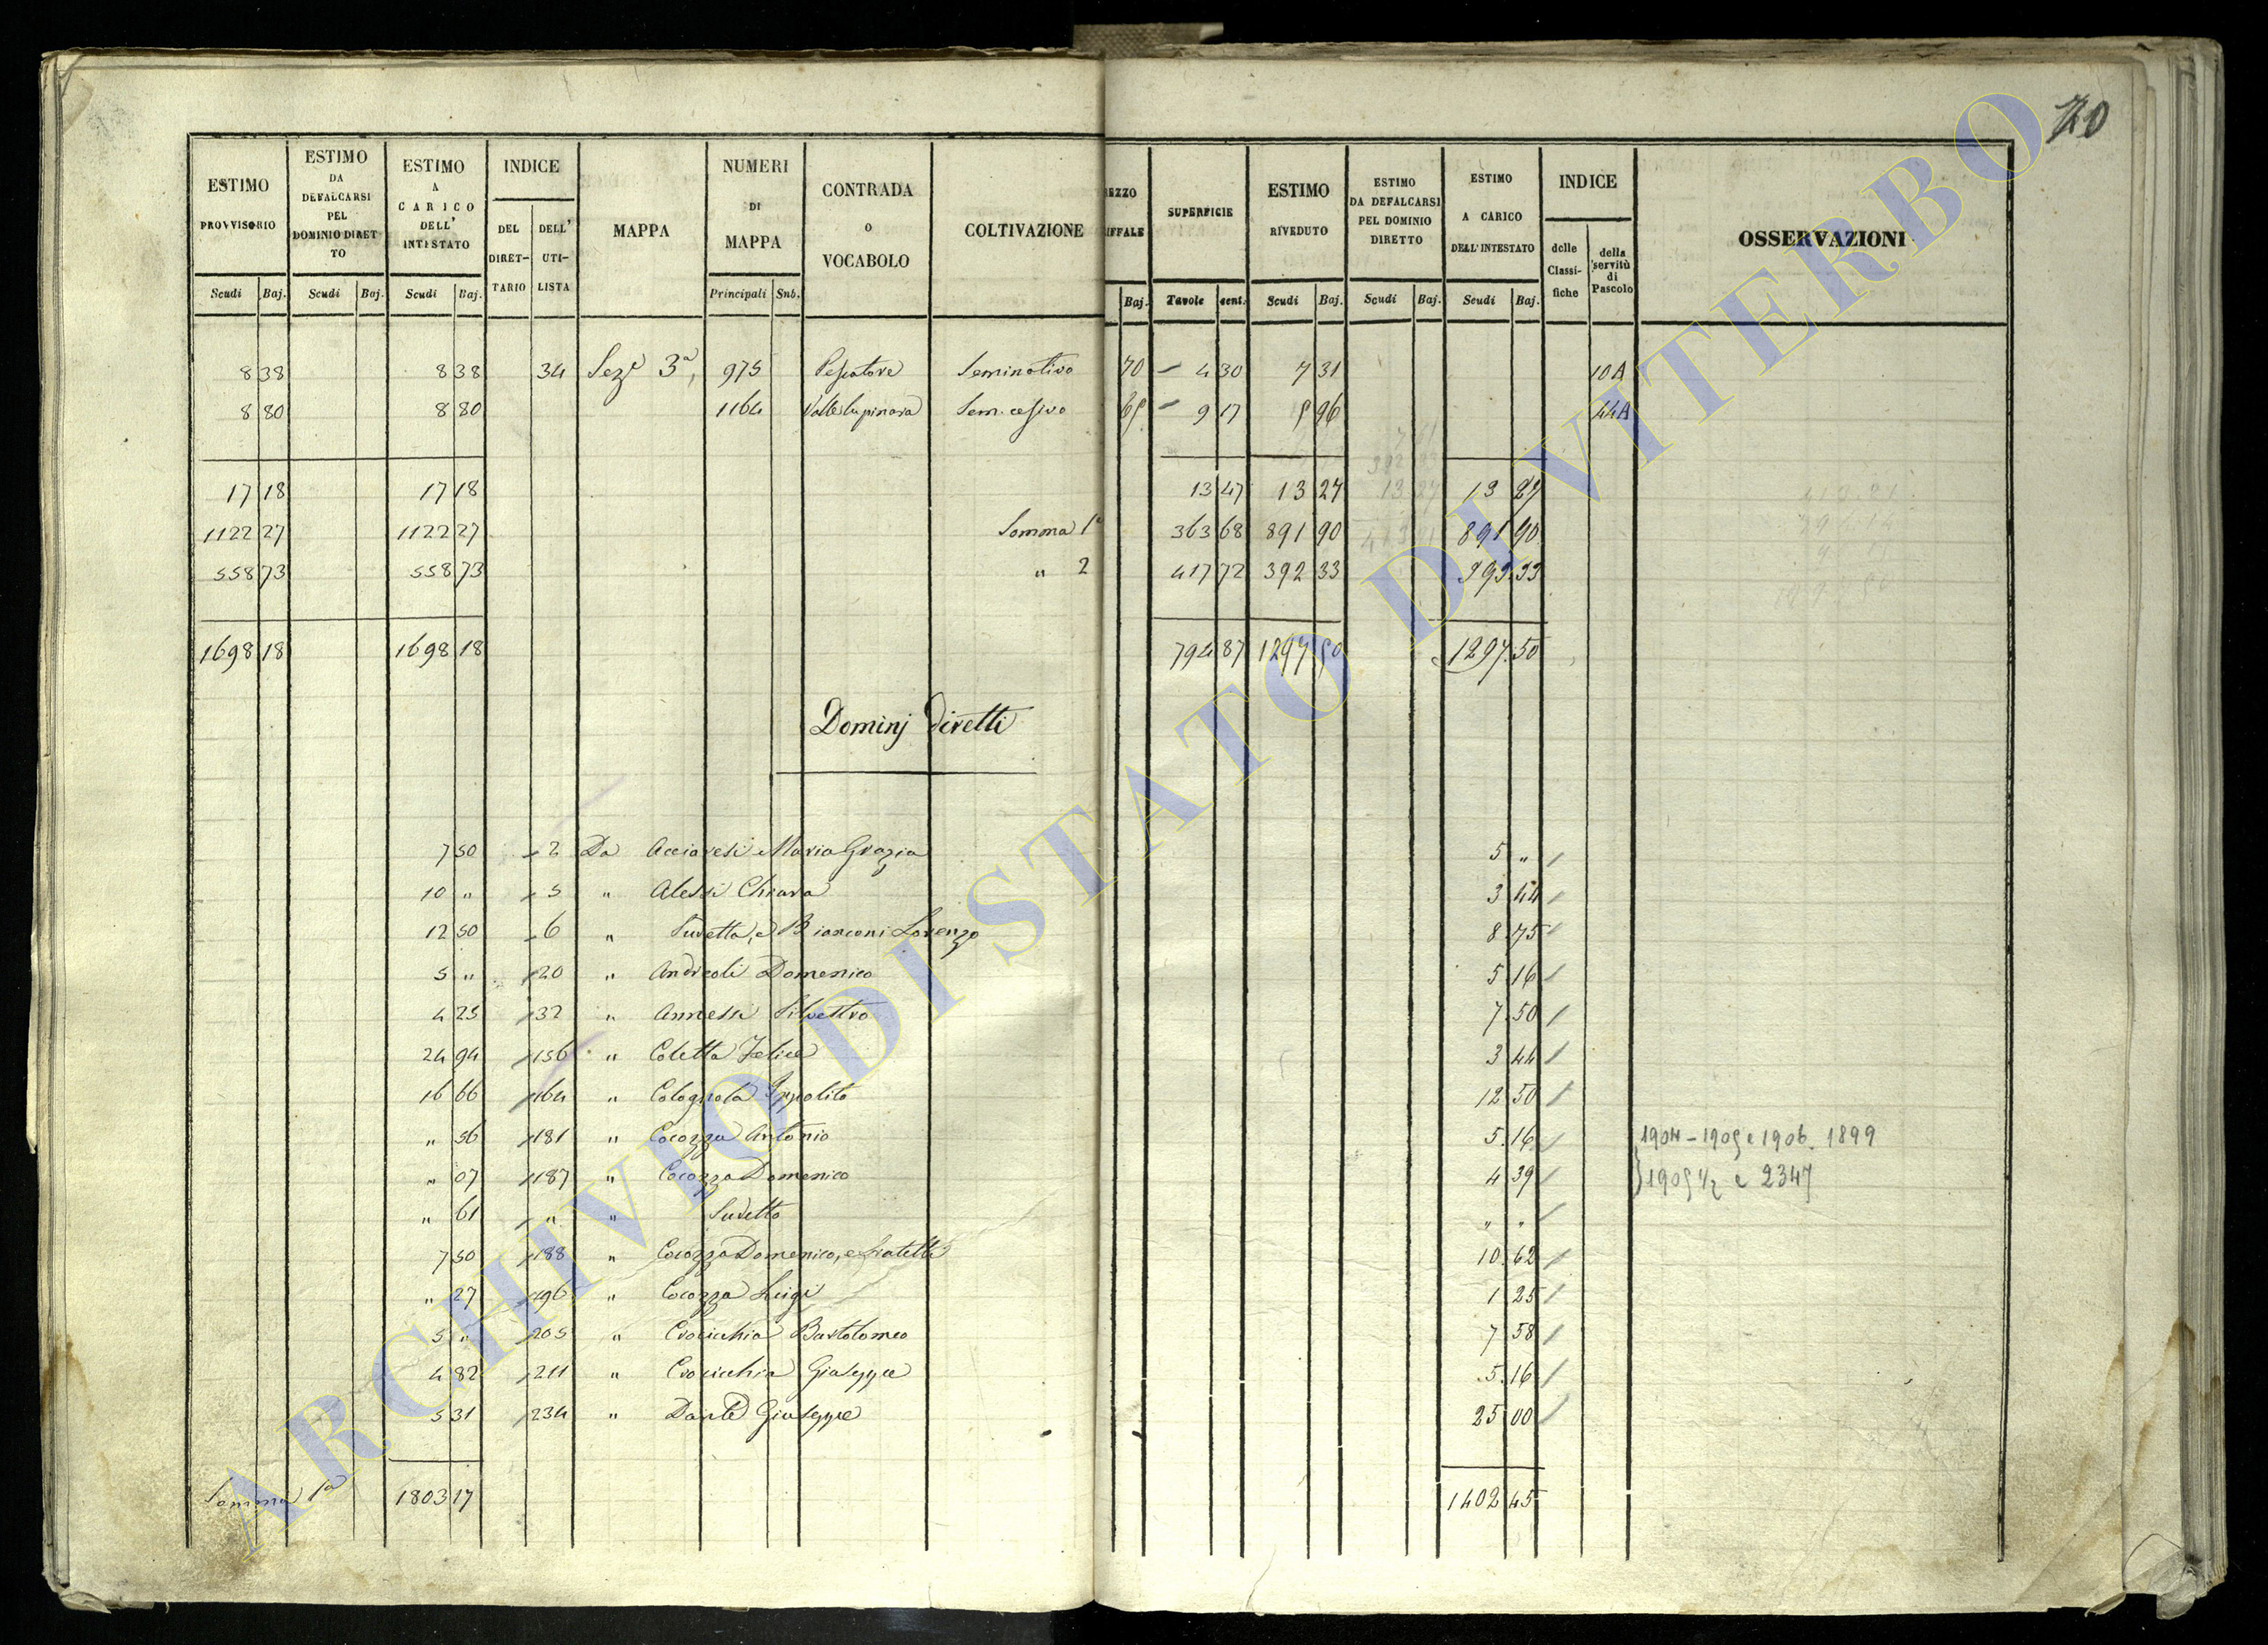 70
ESTIMO PROVVISORIO | ESTIMO DA DEFALCARSI PEL DOMINIO DIRETTO | ESTIMO A CARICO DELL' INTESTATO | INDICE | MAPPA | NUMERI DI MAPPA | CONTRADA o VOCABOLO | COLTIVAZIONE | SUPERFICIE | ESTIMO RIVEDUTO | ESTIMO DA DEFALCARSI PEL DOMINIO DIRETTO | ESTIMO A CARICO DELL' INTESTATO | INDICE | OSSERVAZIONI
DEL DIRETTARIO | DELL' UTILISTA | delle Classifiche | della servitù di Pascolo
Scudi | Baj. | Scudi | Baj. | Scudi | Baj. | Principali | Sub. | Baj. | Tavole | cent. | Scudi | Baj. | Scudi | Baj. | Scudi | Baj.
8 38 | 8 38 | 34 | Sezᵉ 3ª, | 975 | Pescatore | Seminativo | 70 | 4 30 | 7 31 | 10A
8 80 | 8 80 | 1164 | Valle lupinara | Sem. | 9 17 | 5 96 | 44A
17 18 | 17 18 | 13 47 | 13 27 | 13 27 | 13 27
1122 27 | 1122 27 | Somma 1ª | 363 68 | 891 90 | 891 90
558 73 | 558 73 | " 2 | 417 72 | 392 33 | 392.33
1698 18 | 1698 18 | 794 87 | 1297 50 | 1297.50
Dominj diretti
7 50 | 2 | Da Acciaresi Maria Grazia | 5 "
10 " | 5 | " Alessi Chiara | 3 44
12 50 | 6 | " Sudetta, e Bianconi Lorenzo | 8.75
5 " | 20 | " Andreoli Domenico | 5.16
4 25 | 32 | " Annessi Silvestro | 7.50
24 94 | 156 | " Coletta Felice | 3 44
16 66 | 164 | " Colagnola Ippolito | 12.50
" 56 | 181 | " Cocozza Antonio | 5.16 | 1904 - 1905 e 1906. 1899
" 07 | 187 | " Cocozza Domenico | 4 39 | 1905 1/2 e 2347
" 61 | " | " Sudetto | " "
7 50 | 188 | " Cocozza Domenico, e fratelli | 10.62
" 27 | 196 | " Cocozza Luigi | 1 25
5 " | 205 | " Crocicchia Bartolomeo | 7 58
4 82 | 211 | " Crocicchia Giuseppe | 5.16
5 31 | 234 | " Dante Giuseppe | 25 00
Somma 1ª | 1803 17 | 1402 45
ARCHIVIO DI STATO DI VITERBO